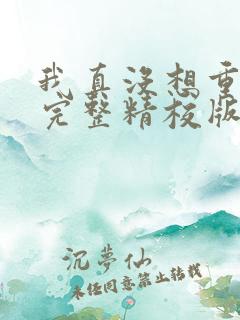 我真没想重
完整精校版
沉夢仙
未经同意禁止转载